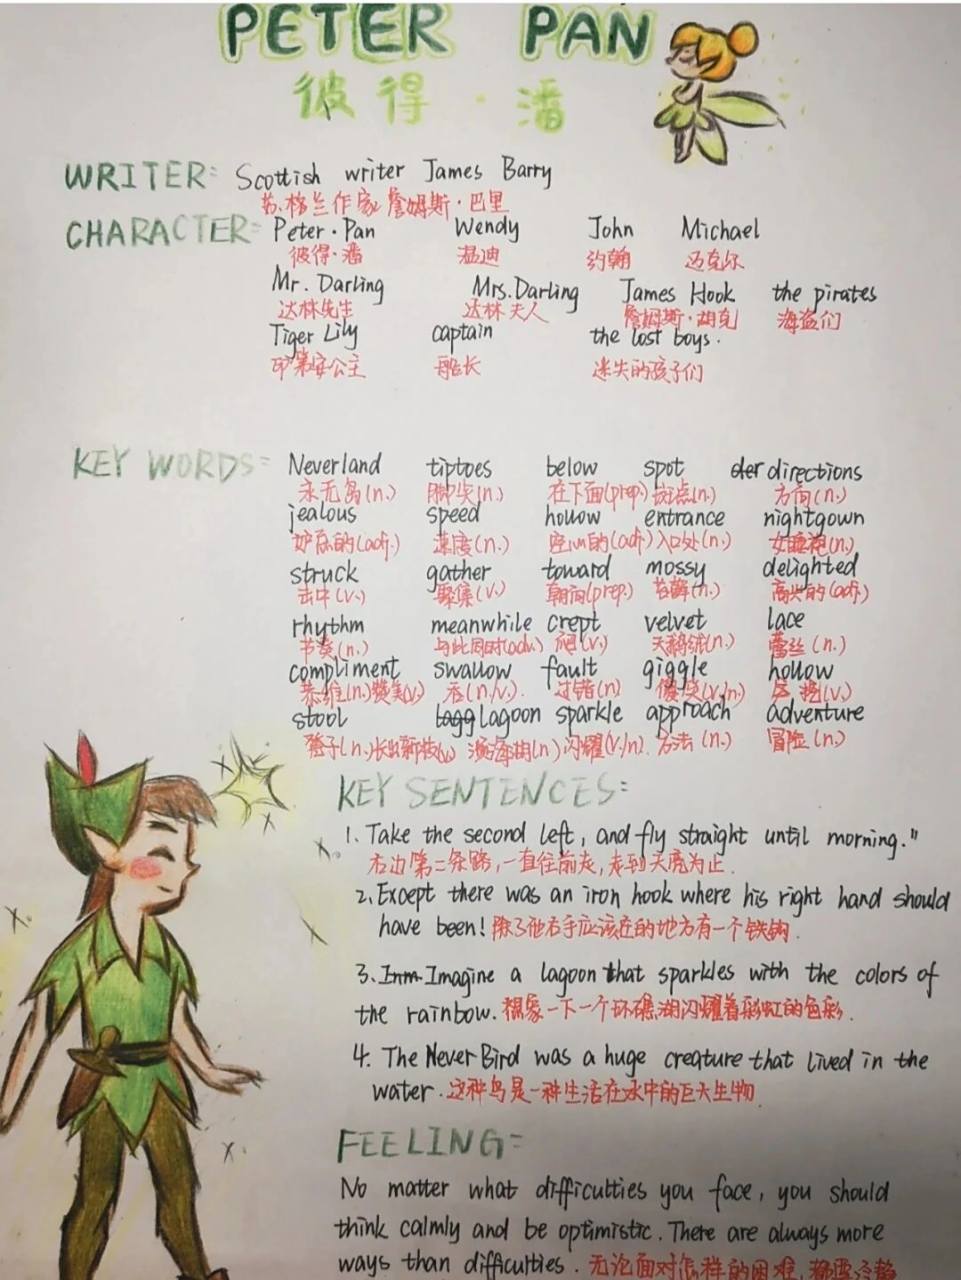 PETER PAN
彼得·潘
WRITER: Scottish writer James Barry
苏格兰作家詹姆斯·巴里
CHARACTER: Peter·Pan Wendy John Michael
彼得·潘 温迪 约翰 迈克尔
Mr. Darling Mrs. Darling James Hook the pirates
达林先生 达林夫人 詹姆斯·胡克 海盗们
Tiger Lily captain the lost boys.
印第安公主 船长 迷失的孩子们
KEY WORDS: Neverland tiptoes below spot directions
永无岛(n.) 脚尖(n.) 在下面(prep.) 斑点(n.) 方向(n.)
jealous speed hollow entrance nightgown
妒忌的(adj.) 速度(n.) 空心的(adj.) 入口处(n.) 女睡袍(n.)
struck gather toward mossy delighted
击中(v.) 聚集(v.) 朝向(prep.) 苔藓(n.) 高兴的(adj.)
rhythm meanwhile crept velvet lace
节奏(n.) 与此同时(adv.) 爬(v.) 天鹅绒(n.) 蕾丝(n.)
compliment swallow fault giggle hollow
恭维(n.)赞美(v.) 吞(n./v.) 过错(n) 傻笑(v./n.) 挖(v.)
stool lagoon sparkle approach adventure
凳子(n.)长出新枝(v.) 滨海湖(n) 闪耀(v./n). 方法(n.) 冒险(n.)
KEY SENTENCES:
1. Take the second left, and fly straight until morning."
右边第二条路,一直往前走,走到天亮为止.
2. Except there was an iron hook where his right hand should
have been! 除了他右手应该在的地方有一个铁钩.
3. Imagine a lagoon that sparkles with the colors of
the rainbow. 想象一下一个环礁湖闪耀着彩虹的色彩.
4. The Never Bird was a huge creature that lived in the
water. 这种鸟是一种生活在水中的巨大生物
FEELING:
No matter what difficulties you face, you should
think calmly and be optimistic. There are always more
ways than difficulties. 无论面对怎样的困难,都要冷静